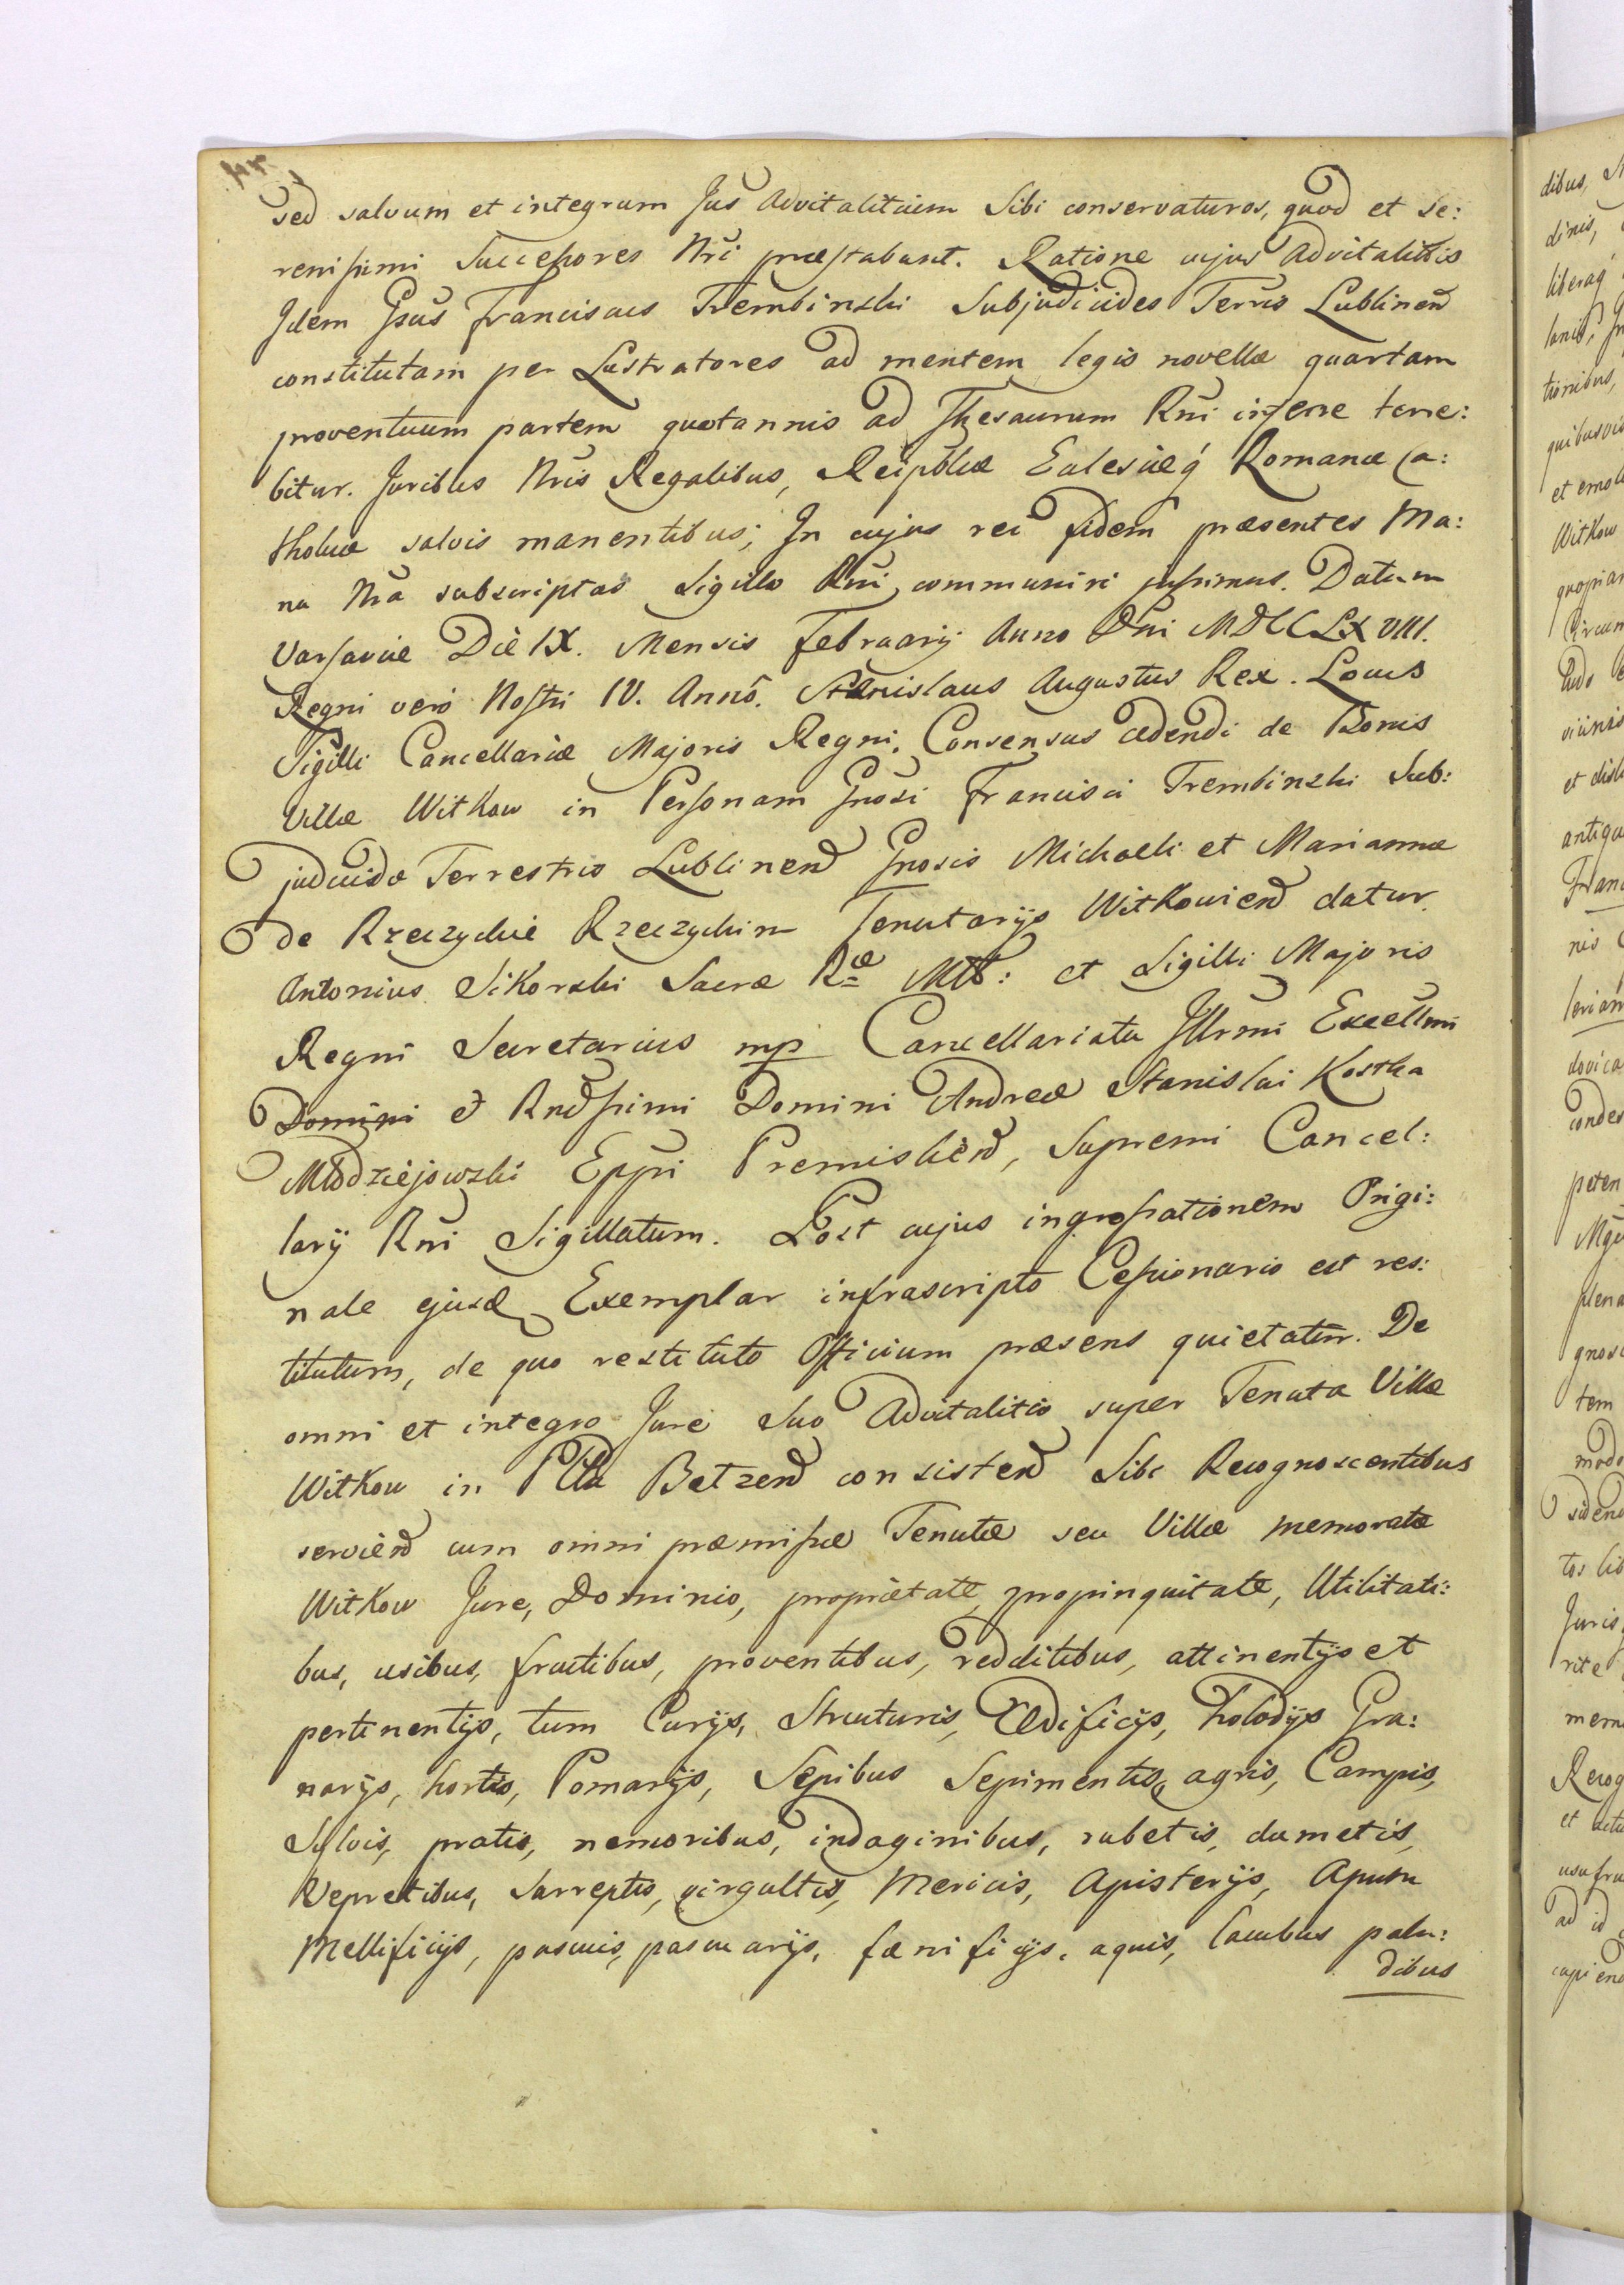 sed salvum et integrum Jus Advitalitium Sibi conservaturos, quod et Se:
renissimi Successores Nri præstabunt. Ratione cujus Advitalitatis
Idem Gsus Franciscus Trembinski Subjudicides Terris Lublinen
constitutam per Lustratores ad mentem legis novellæ quartam
proventuum partem quotannis ad Thesaurum Rni inferre tene:
bitur. Juribus Nris Regalibus, Reipblicæ Eclesiæq Romanæ Ca:
tholicæ salvis manentibus; In cujus rei fidem præsentes Ma:
nu Nra subscriptas Sigillo Rni communiri jussimus. Datum
Varsaviæ Die IX. Mensis February Anno Dni MDCCLXVIII.
Regni vero Nostri IV. Anno. Stanislaus Augustus Rex. Locus
Sigilli Cancellariæ Majoris Regni. Consensus cedendi de Bonis
Villæ Witkow in Personam Gnosi Francisci Trembinski Sub:
judicidæ Terrestris Lublinen Gnosis Michaeli et Mariannæ
de Rzeczyckie Rzeczyckim Tenutarijs Witkovien datur.
Antonius Sikorski Sacræ Ræ Mtis: et Sigilli Majoris
Regni Secretarius mp Cancellariatu Illrmi Excellmi
Domini et Rndssimi Domini Andreæ Stanislai Kostka
Młodziejowski Eppi Premislien, Supremi Cancel:
larij Rni Sigillatum. Post cujus ingrossationem Origi:
nale ejusd Exemplar infrascripto Cessionario est res:
titutum, de quo restituto Officium præsens quietatur. De
omni et integro Jure Suo Advitalitio super Tenuta Villæ
Witkow in Pttu Betzen consisten Sibi Recognoscentibus
servien cum omni præmissæ Tenutæ seu Villæ memoratæ
Witkow Jure, Dominio, proprietate, propinquitate, Utilitati:
bus, usibus, fructibus, proventibus, redditibus, attinentijs et
pertinentijs, tum Curijs, Structuris, Ædificijs, Folodijs Gra:
narijs, hortis, Pomarijs, Sepibus Sepimentis, agris, Campis,
Sylvis, pratis, nemoribus, indaginibus, rubetis, dumetis,
Vepretibus, Sarreptis, virgultis, Mericis, Apisterijs, Apum
Mellificijs, pascuis, pascuarijs, fænificijs, aquis, lacubus palu:
dibus